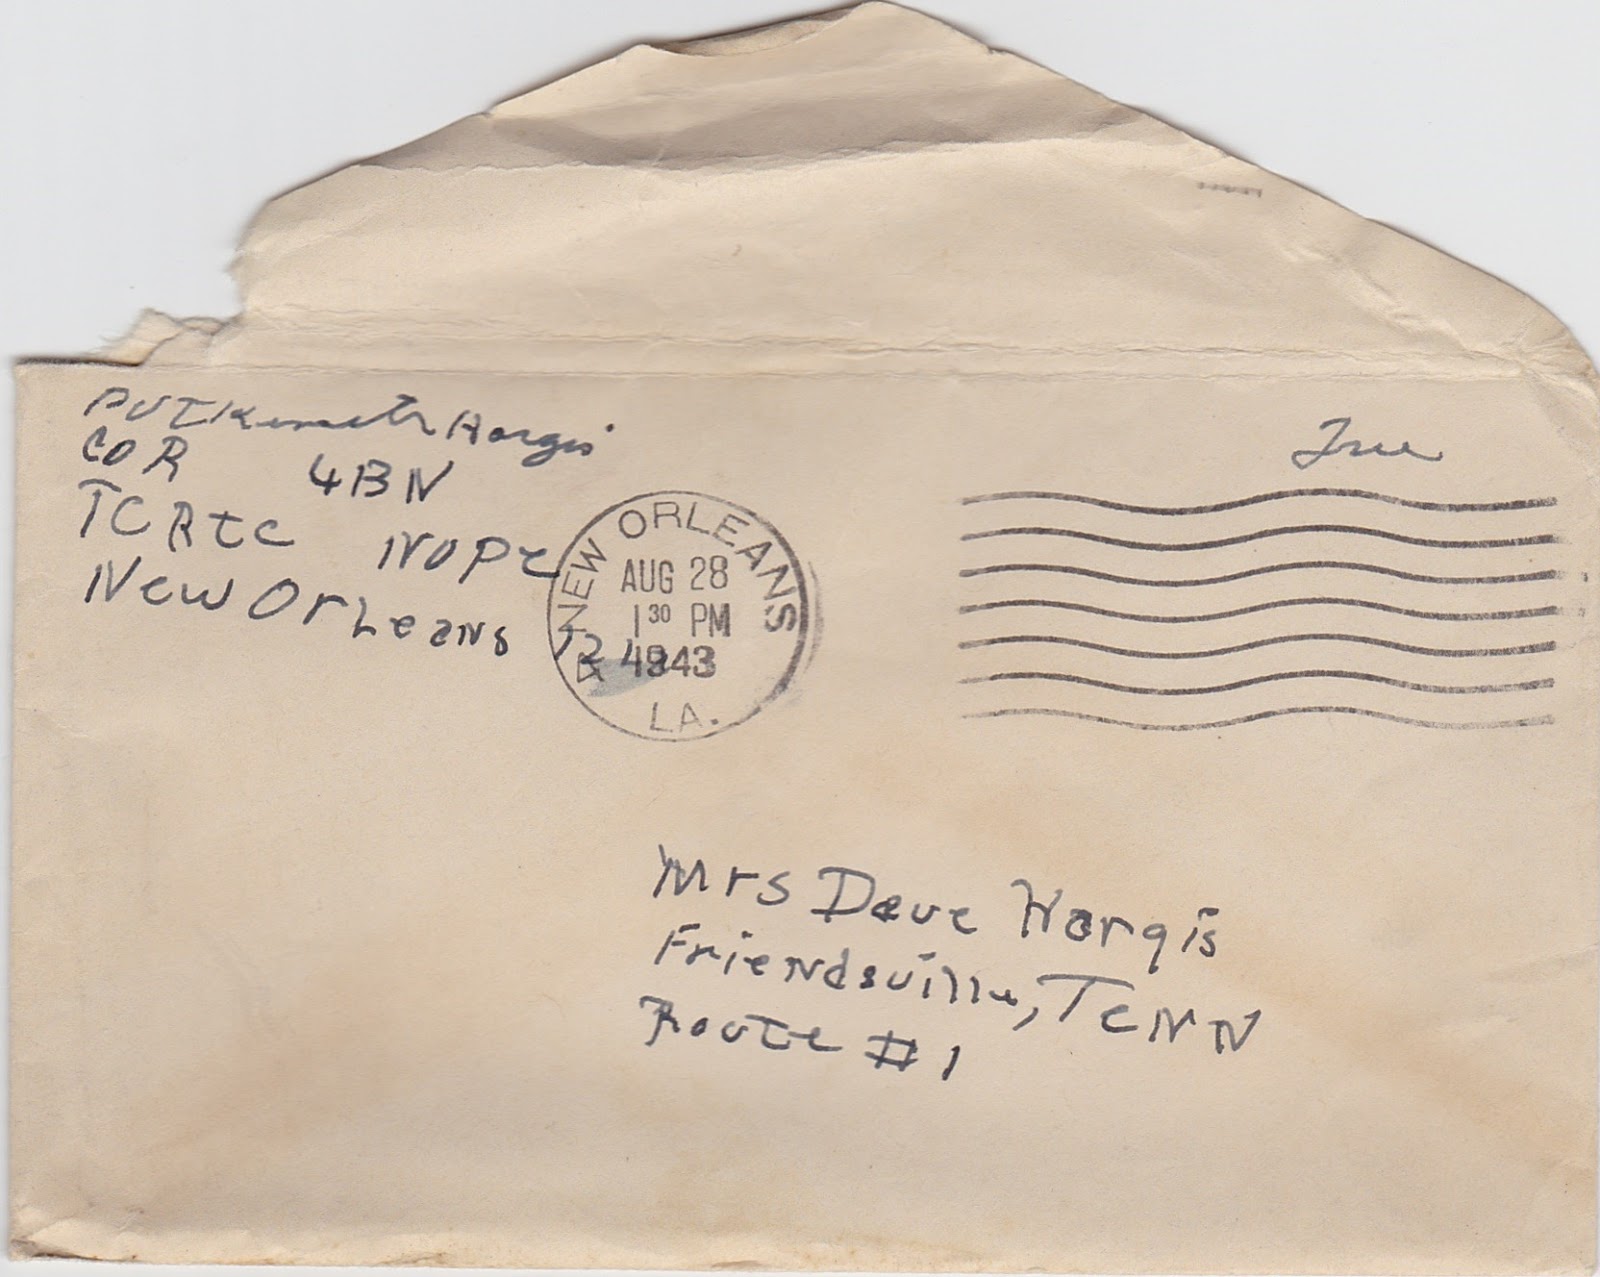 PVT Kenneth Hargis
CO R 4 BN
TCRTC NOPE
New Orleans 12
Free
NEW ORLEANS
AUG 28
1 30 PM
1943
LA.
Mrs Dave Hargis
Friendsville, Tenn
Route #1